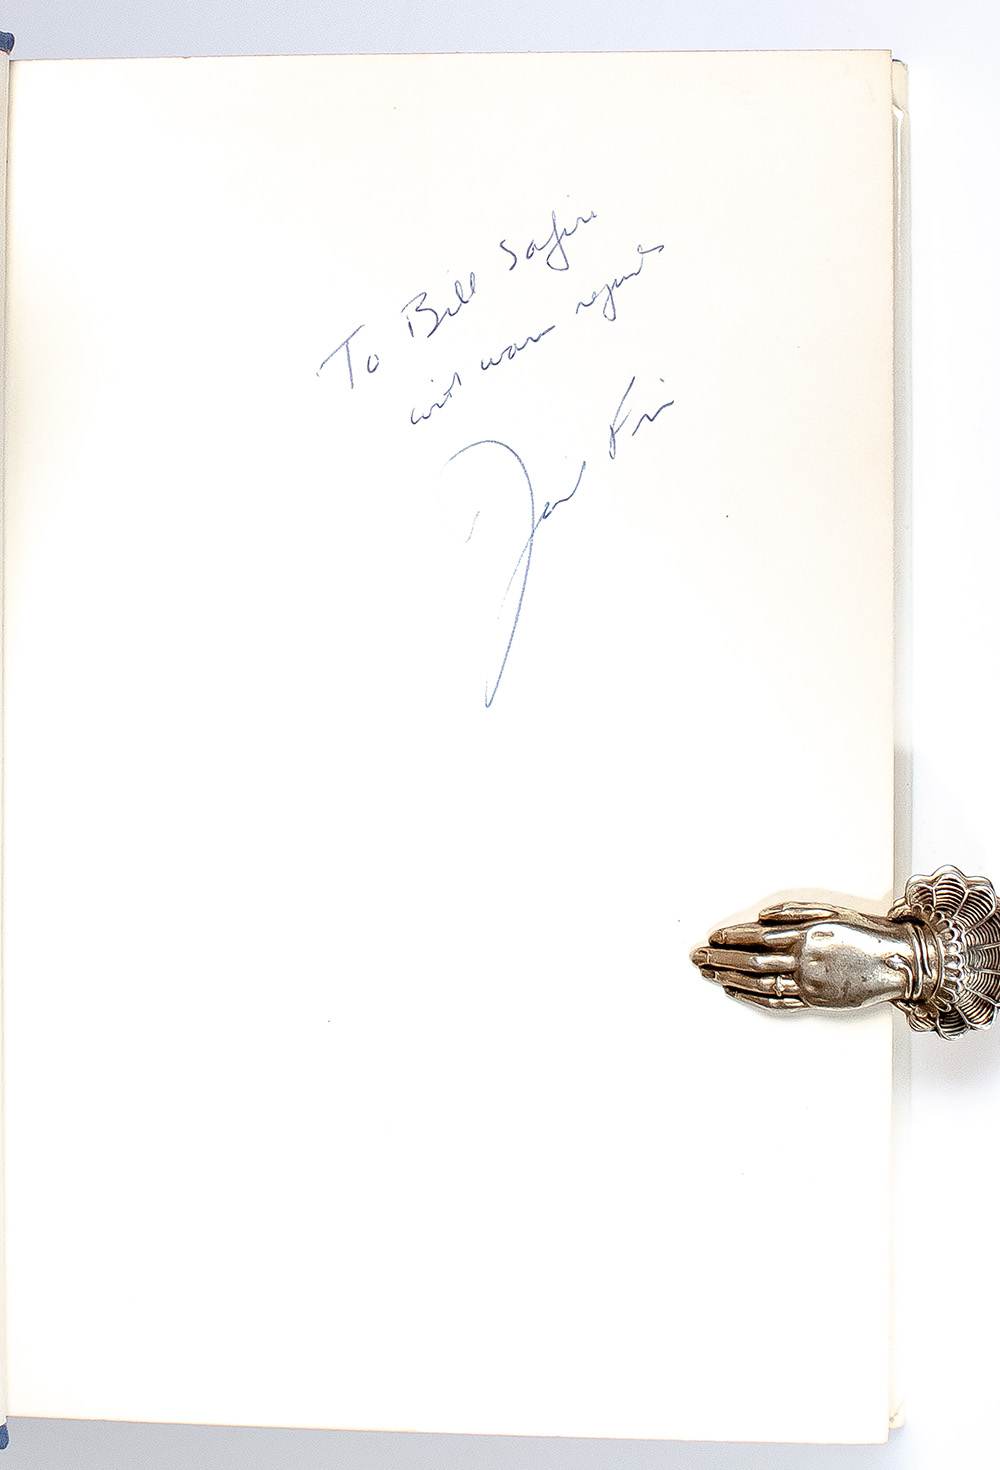 To Bill Safire
with warm regards
David